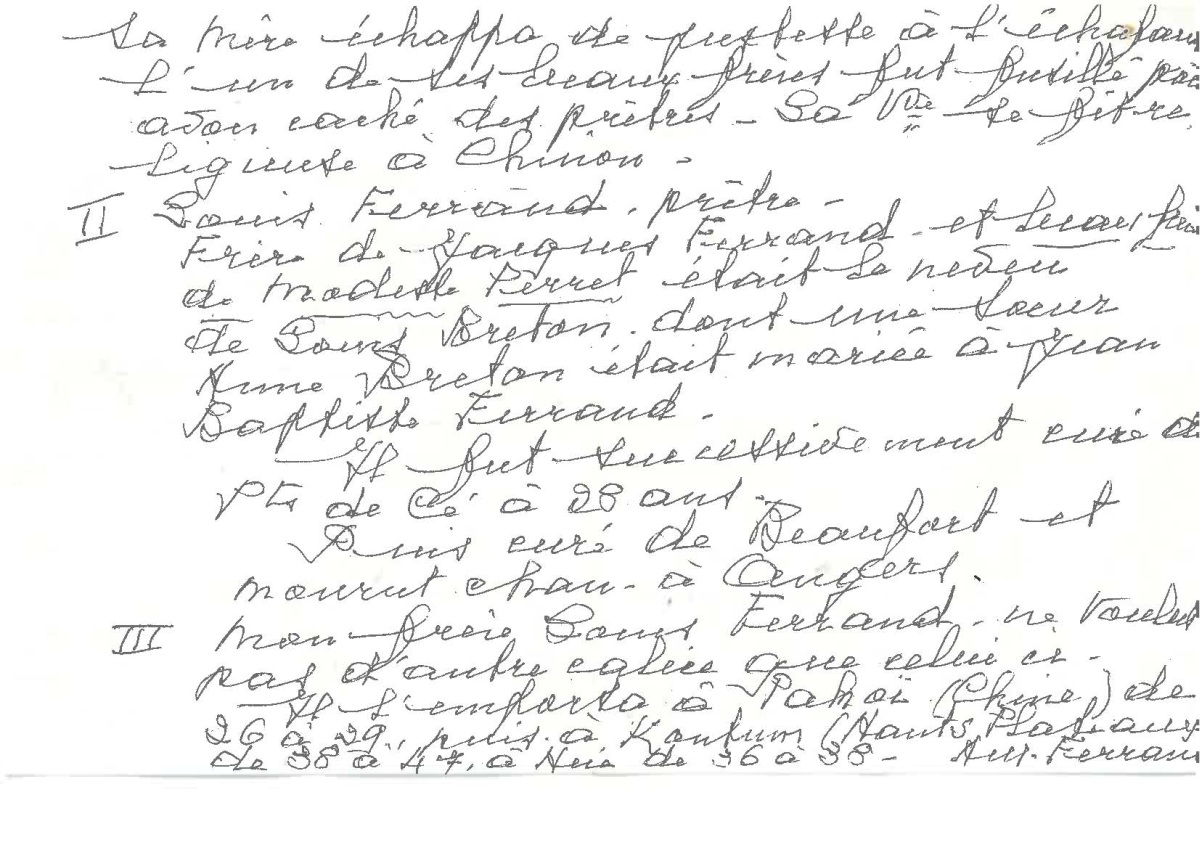 Sa mère échappa de justesse à l'échafau
L'un de ses beaux frères fut fusillé
avoir caché des prêtres - Sa Vve se fit re
ligieuse à Chinon -
II Louis Ferrand. prêtre -
Frère de Jacques Ferrand et beau frère
de Modeste Perret était le neveu
de Louis Breton. dont une soeur
Anne Breton était mariée à Jean
Baptiste Ferrand -
Il fut successivement curé de
Pts de Cé à 28 ans -
Puis curé de Beaufort et
mourut chan. à Angers.
III Mon frère Louis Ferrand - ne voulut
pas d'autre calice que celui ci -
Il l'emporta à Pakoï (Chine) de
26 à 29, puis à Kontum (Hauts Plateaux
de 38 à 47, à Hué de 36 à 38 - Ferrand